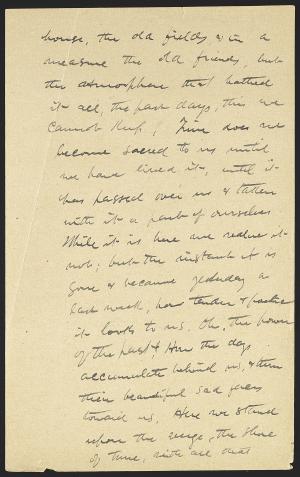 house, the old fields & in a
measure the old friends, but
the atmosphere that bathed
it all, the past days, this we
cannot keep. Time does not
become sacred to us until
we have lived it, until it
has passed over us & taken
with it a part of ourselves
While it is here we value it
not; but the instant it is
gone & became yesterday or
last week, how tender & pathetic
it looks to us. Oh, the power
of the past & How the days
accumulate behind us, & turn
their beautiful sad faces
toward us. Here we stand
upon the verge, the shore
of time, with all that